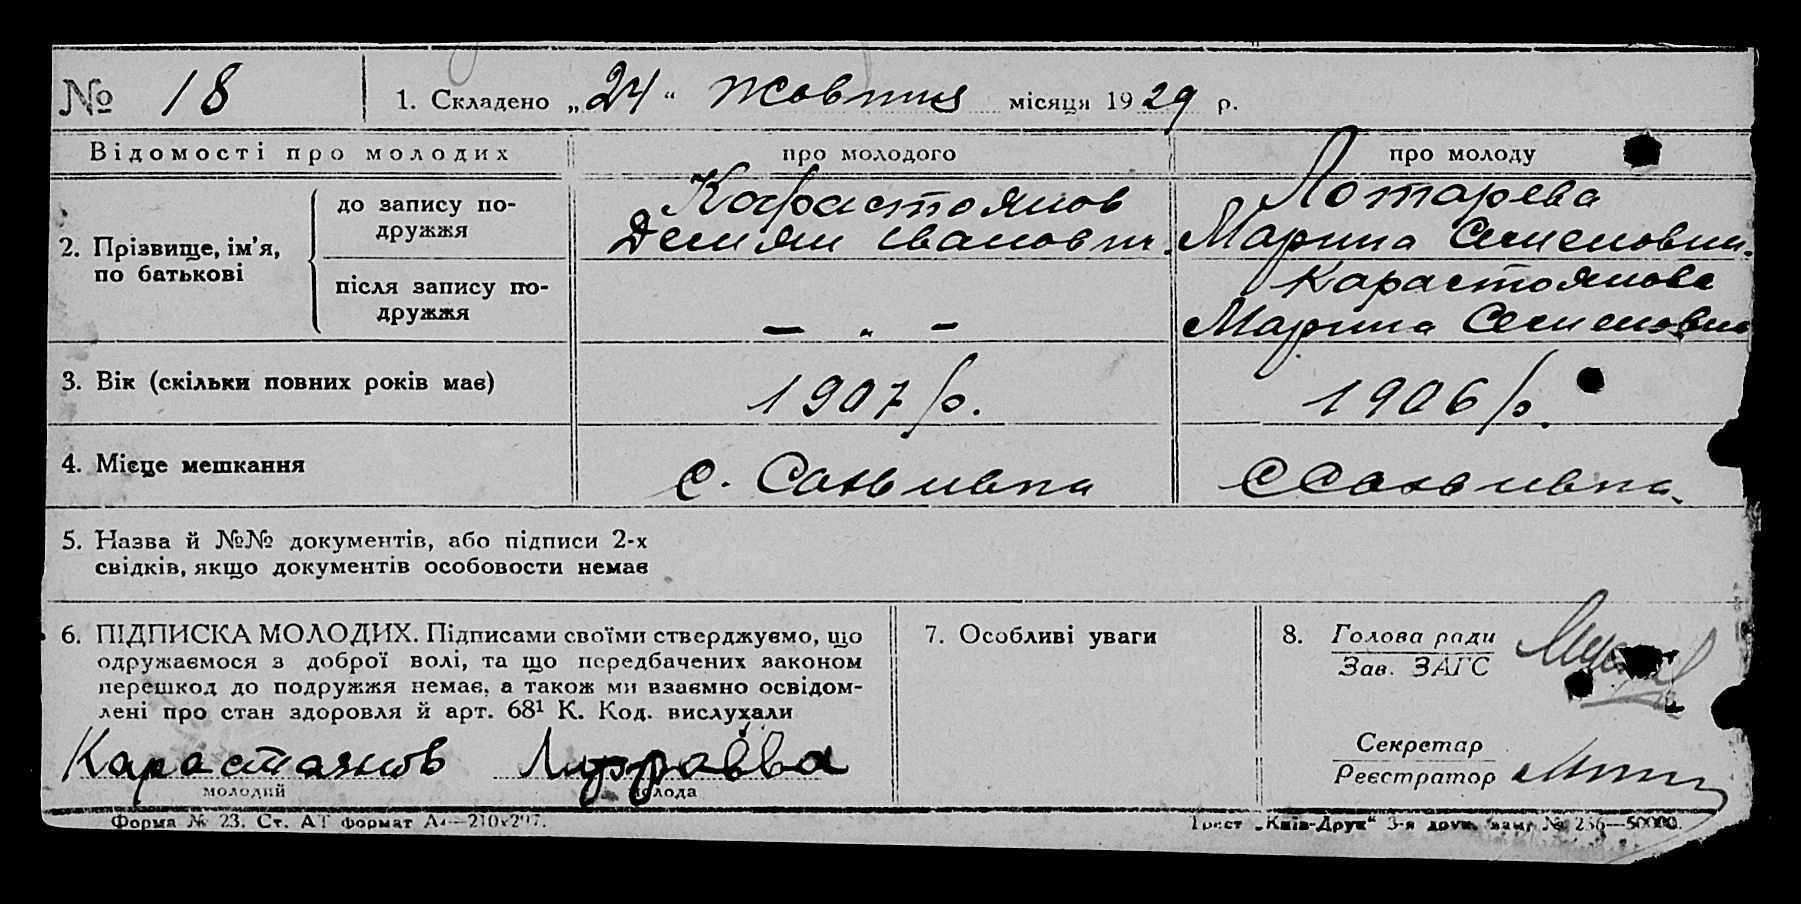 № 18 1. Складено „24“ жовтня місяця 1929 р.
Відомості про молодих про молодого про молоду
2. Прізвище, ім’я, по батькові
до запису по-
дружжя
Карастоянов
Демян Іванович.
Лотарева
Марина Семеновна.
після запису по-
дружжя
— „ —
Карастоянова
Марина Семеновна
3. Вік (скільки повних років має) 1907 р. 1906 р.
4. Місце мешкання с.
5. Назва й №№ документів, або підписи 2-х
свідків, якщо документів особовости немає
6. ПІДПИСКА МОЛОДИХ. Підписами своїми стверджуємо, що
одружаємося з доброї волі, та що передбачених законом
перешкод до подружжя немає, а також ми взаємно освідом-
лені про стан здоровля й арт. 68¹ К. Код. вислухали
Карастоянов
молодий молода
7. Особливі уваги
8. Голова ради
Зав. ЗАГС
Секретар
Реєстратор
Форма № 23. Ст. АТ формат А4—210х297.
Трест „Київ-Друк“ 3-я друк. зам. № 236—50000.